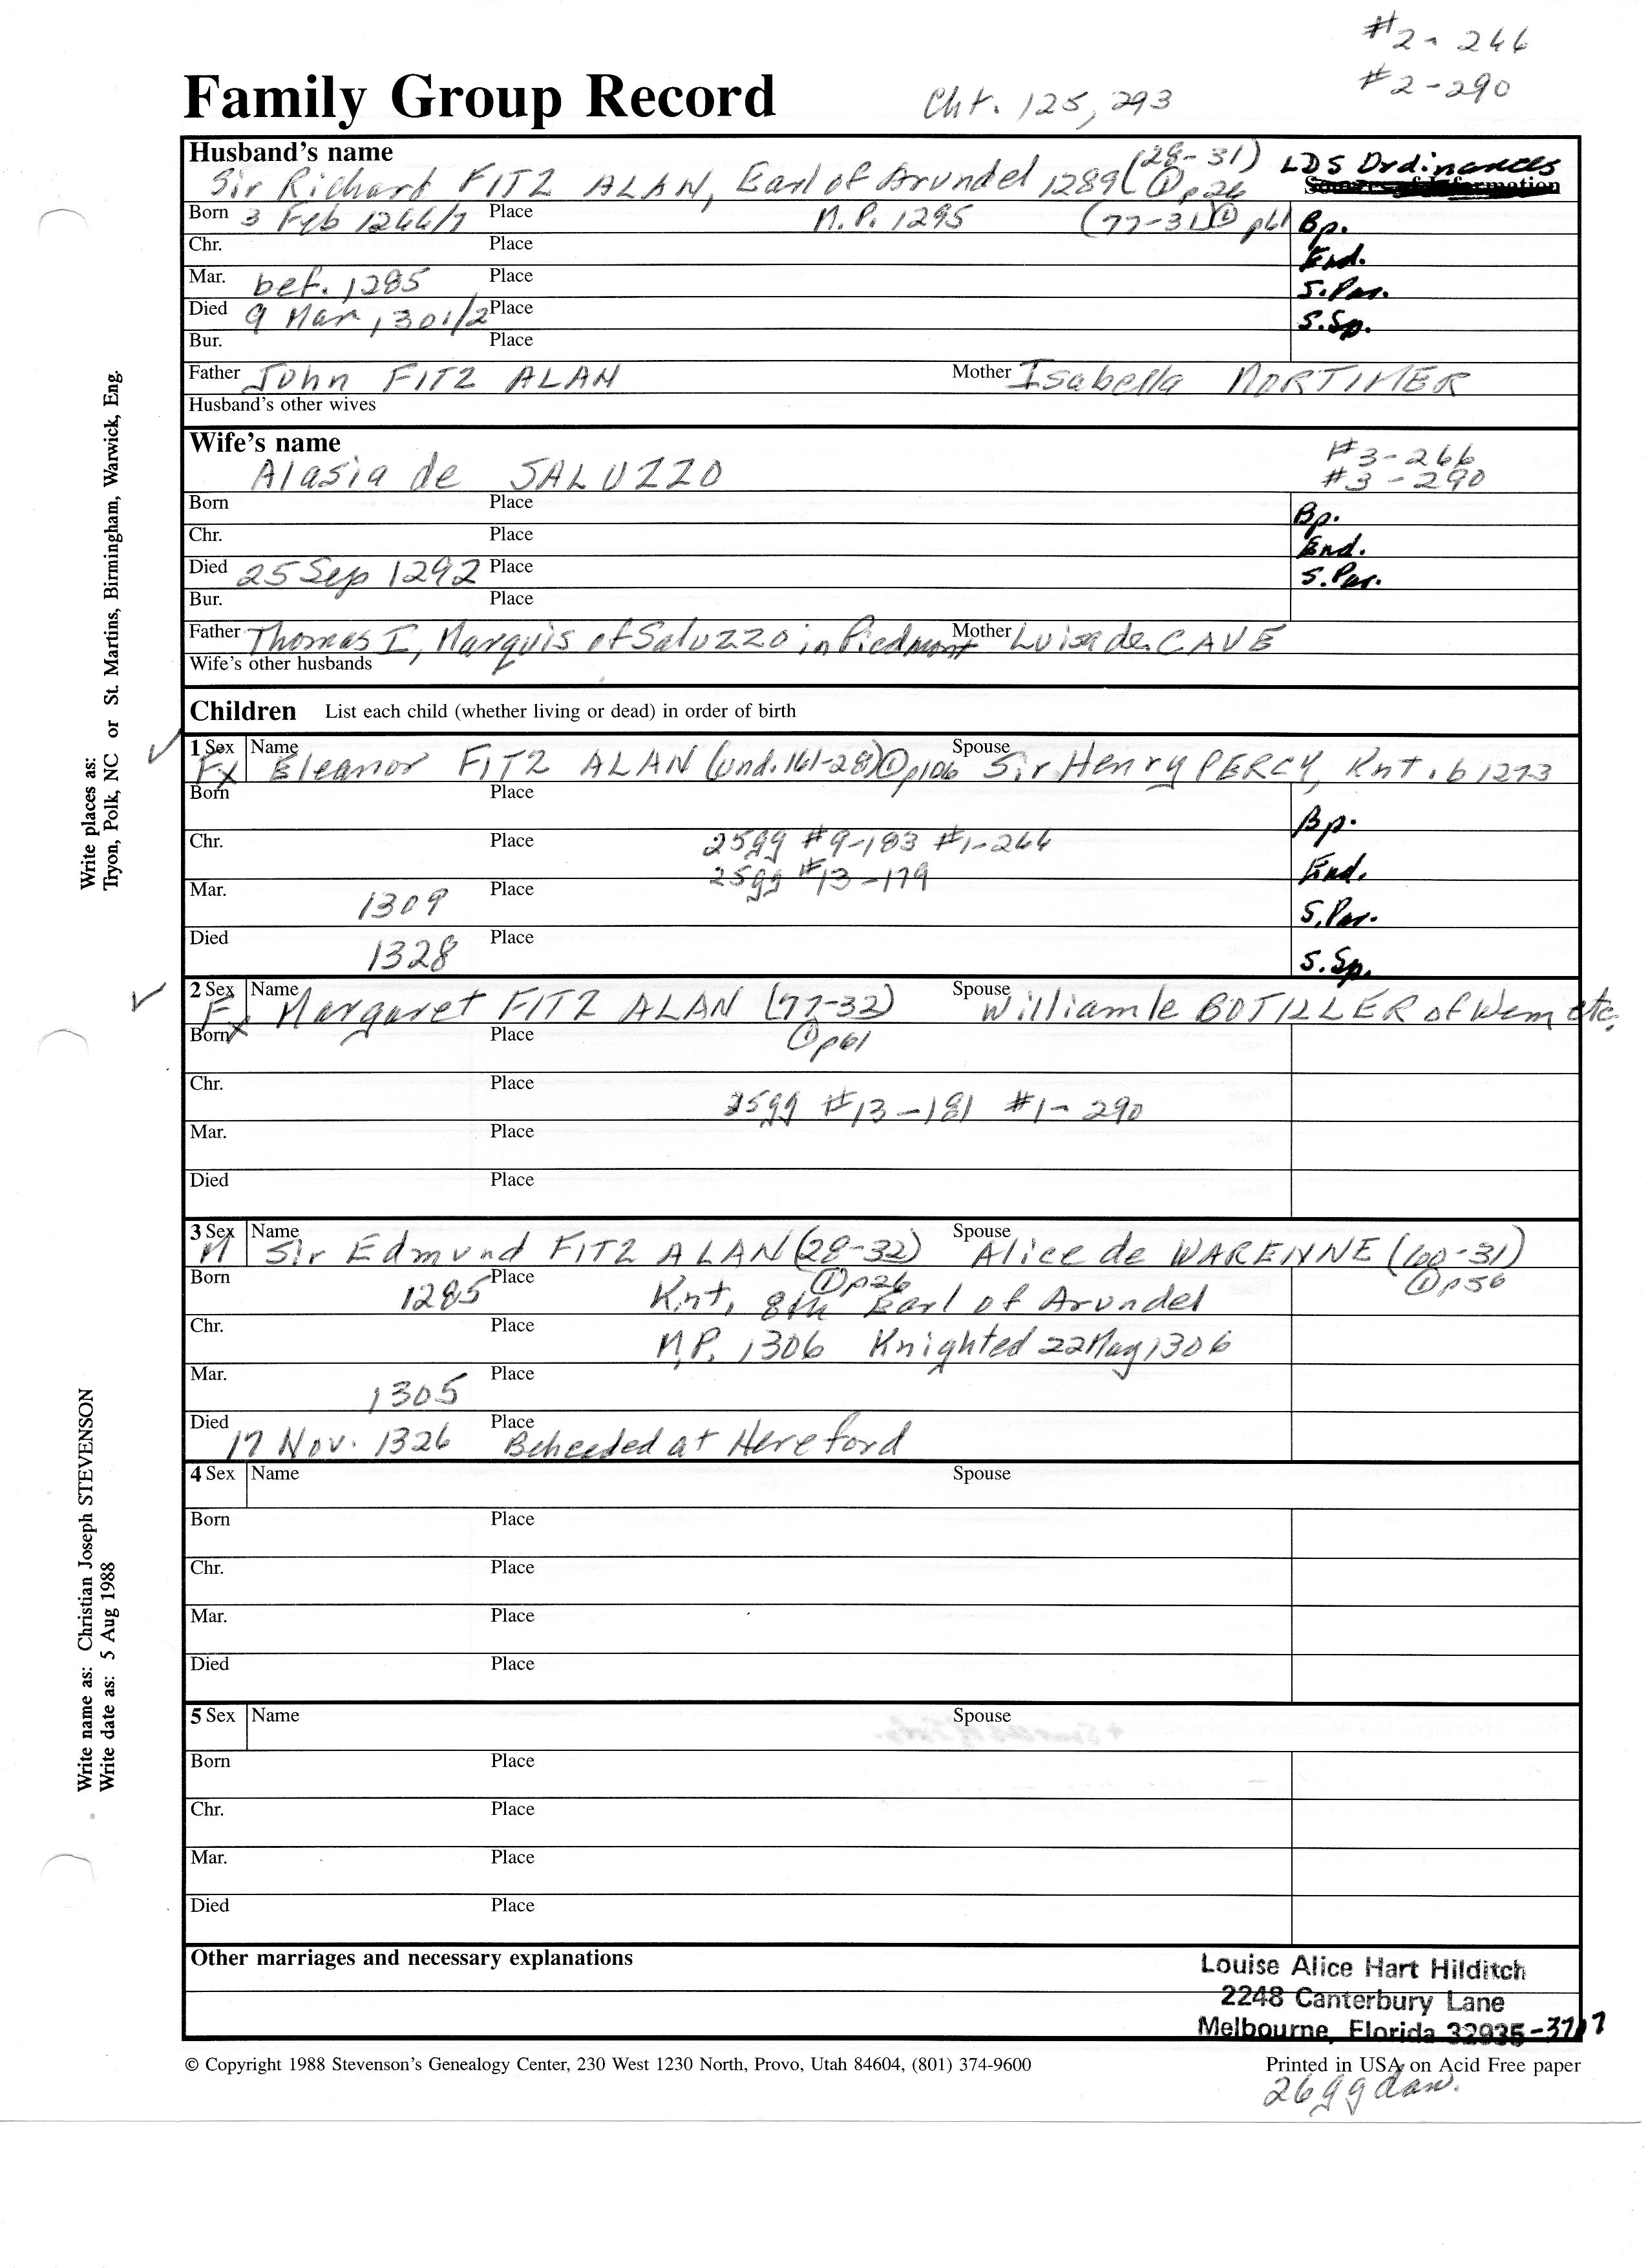 #2-266
#2-290
Family Group Record Cht. 125, 293
Husband's name
Sir Richard FITZ ALAN, Earl of Arundel 1289 (28-31) ① p26 LDS Ordinances
Born 3 Feb 1266/7 Place M.P. 1295 (77-31) ① p61 Bp.
Chr. Place End.
Mar. bef. 1285 Place S.Par.
Died 9 Mar 1301/2 Place S.Sp.
Bur. Place
Father John FITZ ALAN Mother Isabella MORTIMER
Husband's other wives
Wife's name #3-266
Alasia de SALUZZO #3-290
Born Place Bp.
Chr. Place End.
Died 25 Sep 1292 Place S.Par.
Bur. Place
Father Thomas I, Marquis of Saluzzo in Piedmont Mother Luisa de CAVE
Wife's other husbands
Children List each child (whether living or dead) in order of birth
1 Sex Name Spouse
✓ Fx Eleanor FITZ ALAN (und. 161-28) ① p106 Sir Henry PERCY, Knt. b 1273
Born Place Bp.
Chr. Place 25gg #9-183 #1-266
25gg #13-179 End.
Mar. 1309 Place S.Par.
Died 1328 Place S.Sp.
2 Sex Name Spouse
✓ Fx Margaret FITZ ALAN (77-32) William le BOTILLER of Wem etc.
Born Place ① p61
Chr. Place 25gg #13-181 #1-290
Mar. Place
Died Place
3 Sex Name Spouse
M Sir Edmund FITZ ALAN (28-32) Alice de WARENNE (60-31)
① p26 ① p56
Born 1285 Place Knt, 8th Earl of Arundel
Chr. Place M.P. 1306 Knighted 22 May 1306
Mar. 1305 Place
Died 17 Nov. 1326 Place Beheaded at Hereford
4 Sex Name Spouse
Born Place
Chr. Place
Mar. Place
Died Place
5 Sex Name Spouse
Born Place
Chr. Place
Mar. Place
Died Place
Other marriages and necessary explanations
Louise Alice Hart Hilditch
2248 Canterbury Lane
Melbourne, Florida 32935-3717
© Copyright 1988 Stevenson's Genealogy Center, 230 West 1230 North, Provo, Utah 84604, (801) 374-9600 Printed in USA on Acid Free paper
26ggdau.
Write places as:
Tryon, Polk, NC or St. Martins, Birmingham, Warwick, Eng.
Write name as: Christian Joseph STEVENSON
Write date as: 5 Aug 1988